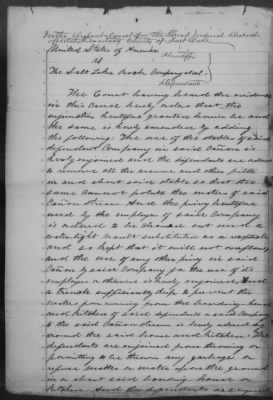 In the District Court for the Third Judicial District
of Utah Territory County of Salt Lake
United States of America
Plaintiff
vs
The Salt Lake Rock Company et al.
Defendants
The Court having heard the evidence
in this Cause hereby orders that the
injunction heretofore granted herein be and
the same is hereby amended by adding
the following; The use of the stables of said
defendant Company in said Cañon is
hereby enjoined and the defendants are ordered
to remove all the manure and other filth
in and about said stable so that the
same cannot pollute the waters of said
Cañon stream. And the privy heretofore
used by the employes of said Company
is ordered to be
water tight vault substituted as a receptacle
and so kept that it will not overflow,
and the use of any other privy in said
Cañon by said Company for the use of its
employes or otherwise is hereby enjoined. And
a trench sufficiently deep to prevent the
water from running from the boarding house
and kitchen of said defendant company
to the said Cañon stream is hereby ordered dug
around the said house and kitchen. The
defendants are enjoined from throwing or
permitting to be thrown any garbage or
refuse matter or water upon the ground
in or about said boarding house or
kitchen. And the defendants are enjoined